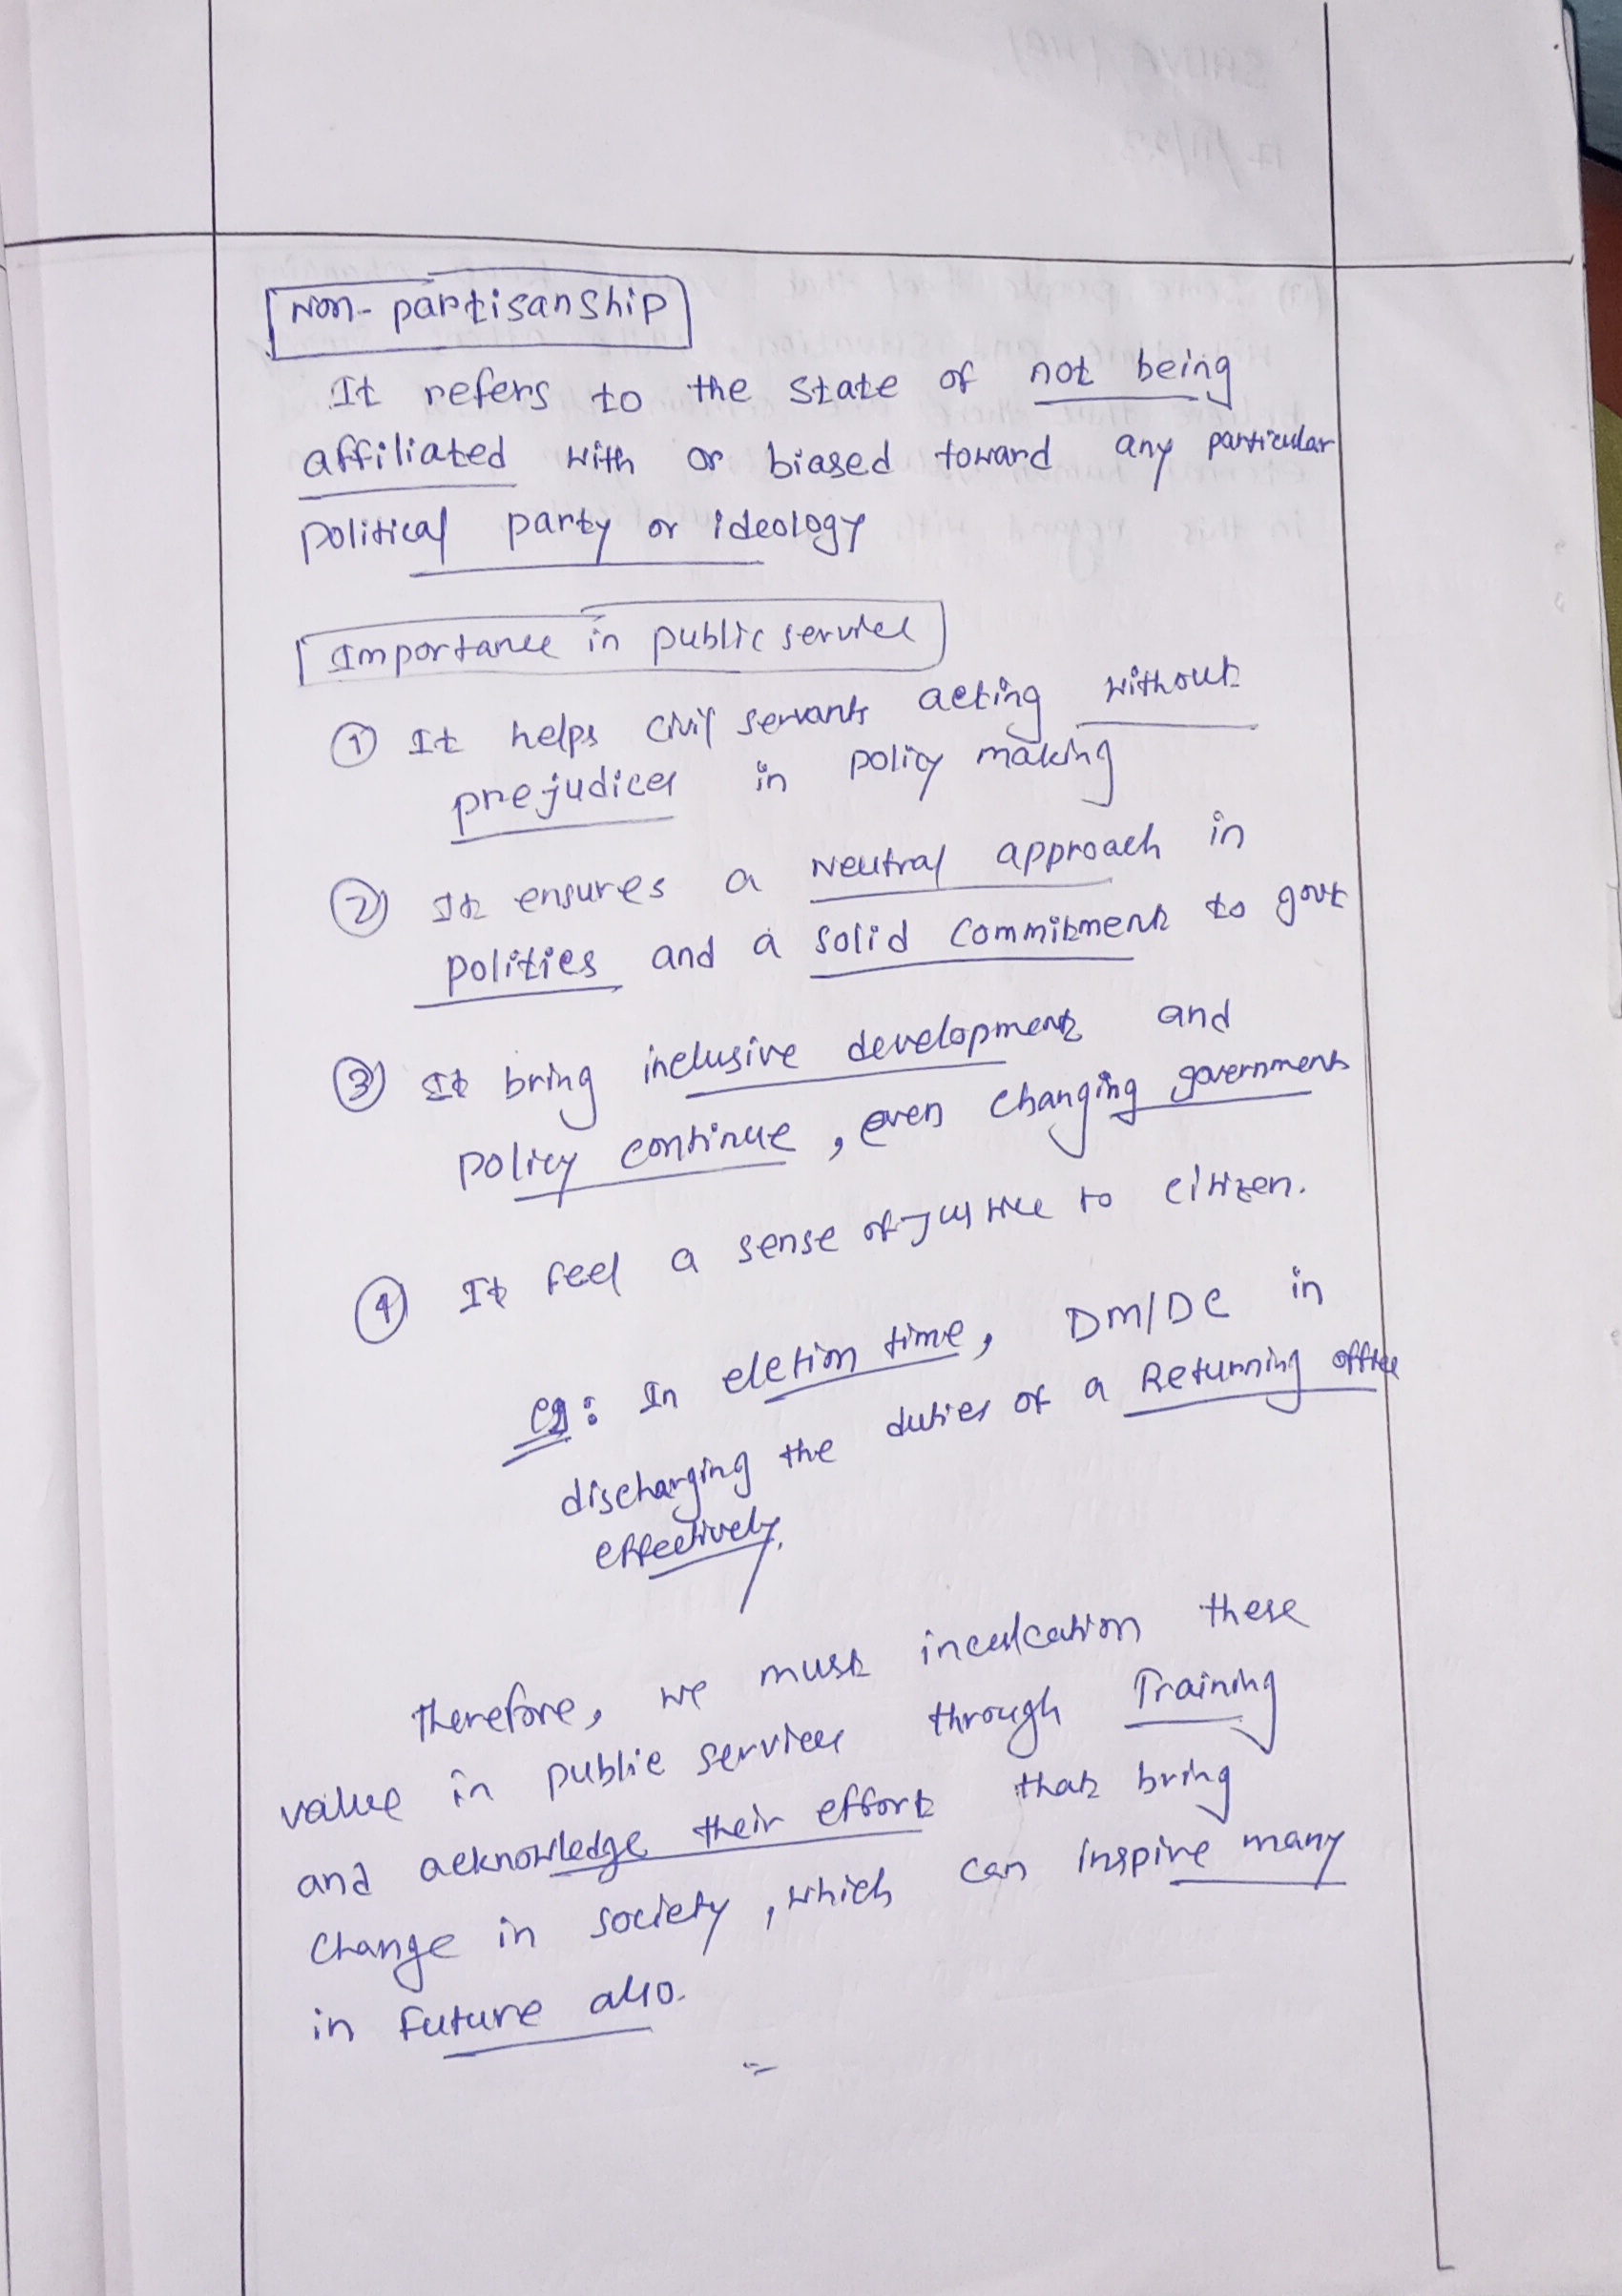 Non-partisanship
It refers to the state of not being
affiliated with or biased toward any particular
political party or ideology
Importance in public service
① It helps civil servants acting without
prejudices in policy making
② It ensures a neutral approach in
polities and a solid commitment to govt
③ It bring inclusive development and
policy continue, even changing governments
④ It feel a sense of justice to citizen.
eg: In eletion time, DM/DC in
discharging the duties of a Returning office
effectively.
Therefore, we must inculcation these
value in public services through Training
and acknowledge their effort that bring
change in society, which can inspire many
in future also.